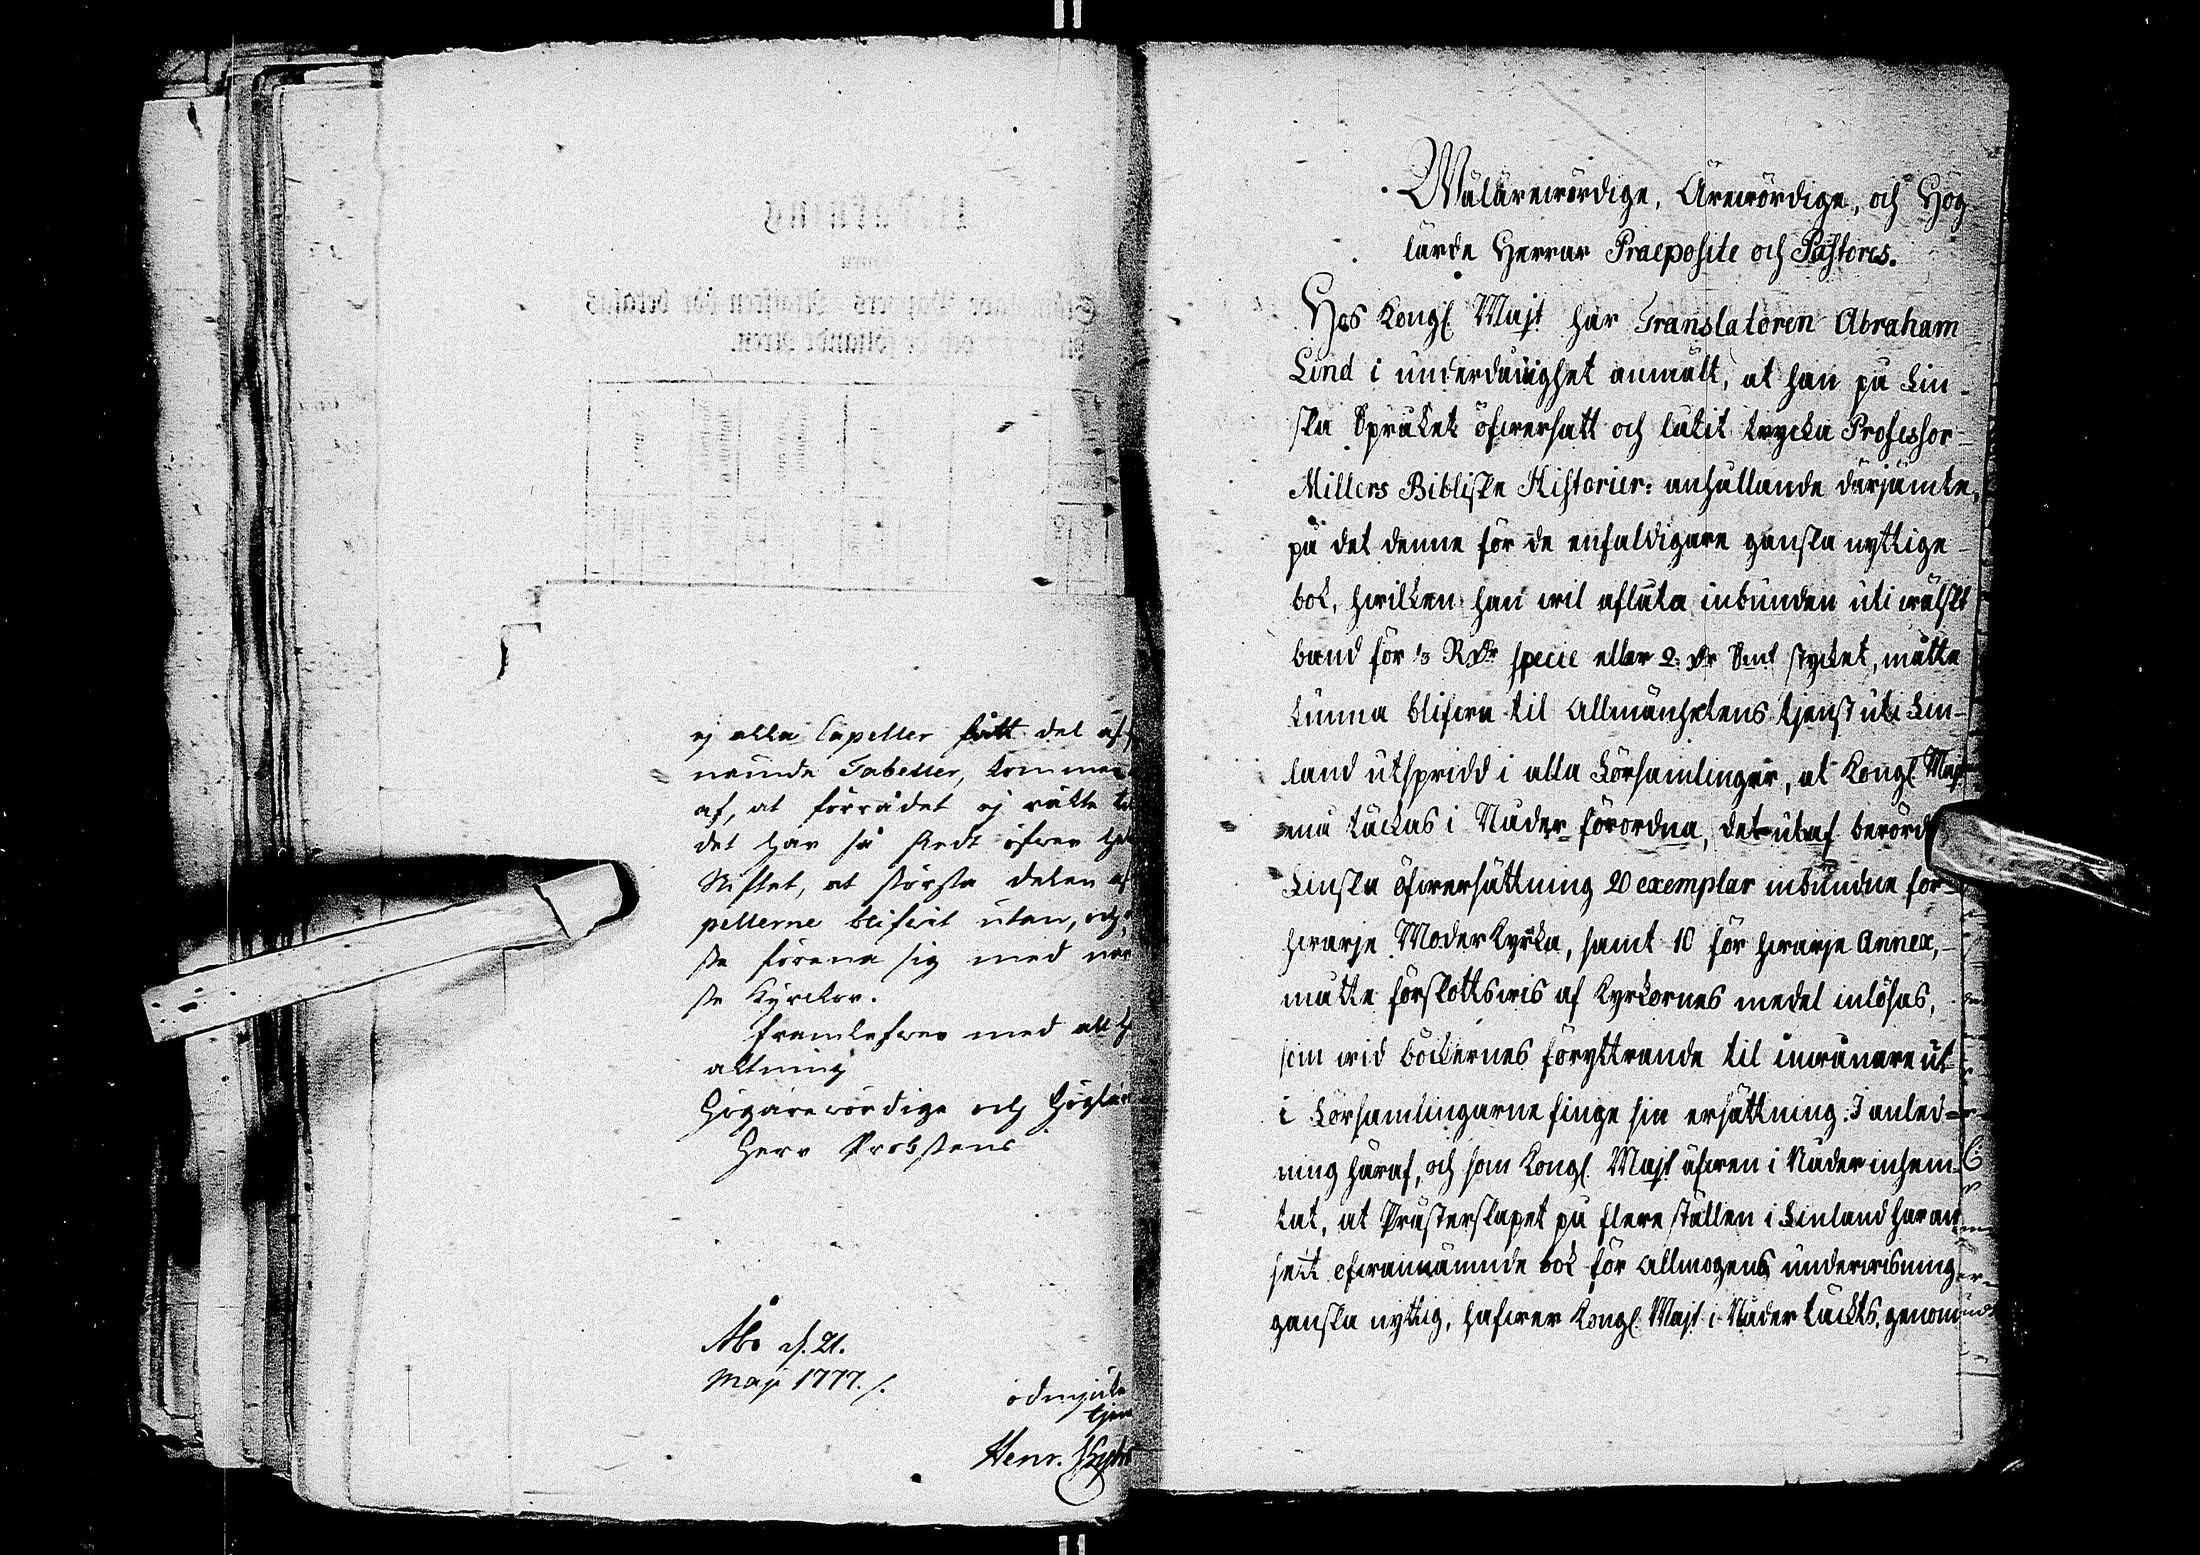 ej alla Capeller fått del af
nämnde Tabeller, kommer
af, at förrådet ej räkte
det har så skedt öfwer
Stiftet, at största delen
pellerne blifwit utan, och
ste förena sig med
ste Kyrckor.
framlefwer med all
aktning
Högärewördige och Höglär
Herr Probstens
Åbo d. 21.
Maji 1777./.
ödmjuke
tjen
Henr.
Wälärewördige, Ärewördige, och Hög
lärde Herrar Praeposite och Pastores.
Hos Kongl. Majt har Translatoren Abraham
Lind i underdånighet anmält, at han på Fin-
ska Språket öfwersatt och låtit trycka Professor
Millers Bibliske Historier: anhållande därjämte,
på det denne för de enfaldigare ganska nyttige
bok, hwilken han wil aflåta inbunden uti wälskt
band för 1/3 R.Dr specie eller 2. Dr Smt stycket, måtte
kunna blifwa til Allmänhetens tjenst uti Fin-
land utspridd i alla Församlingar, at Kongl. Majt
ena täckas i Nåder förordna, det utaf berörd
Finska öfwersättning 20 exemplar inbundne för
hwarje Moder Kyrka, samt 10 för hwarje Annex,
måtte förskottswis af Kyrkornes medel inlösas,
som wid böckernes föryttrande til inwånare ut
i Församlingarne finge sin ersättning. I anled=
ning häraf, och som Kongl. Majt äfwen i Nåder inhem-
tat, at Prästerskapet på flere ställen i Finland har an
sett ofwannämnde bok för Allmogens underwisning
ganska nyttig, hafwer Kongl. Majt i Nåder täckts, genom